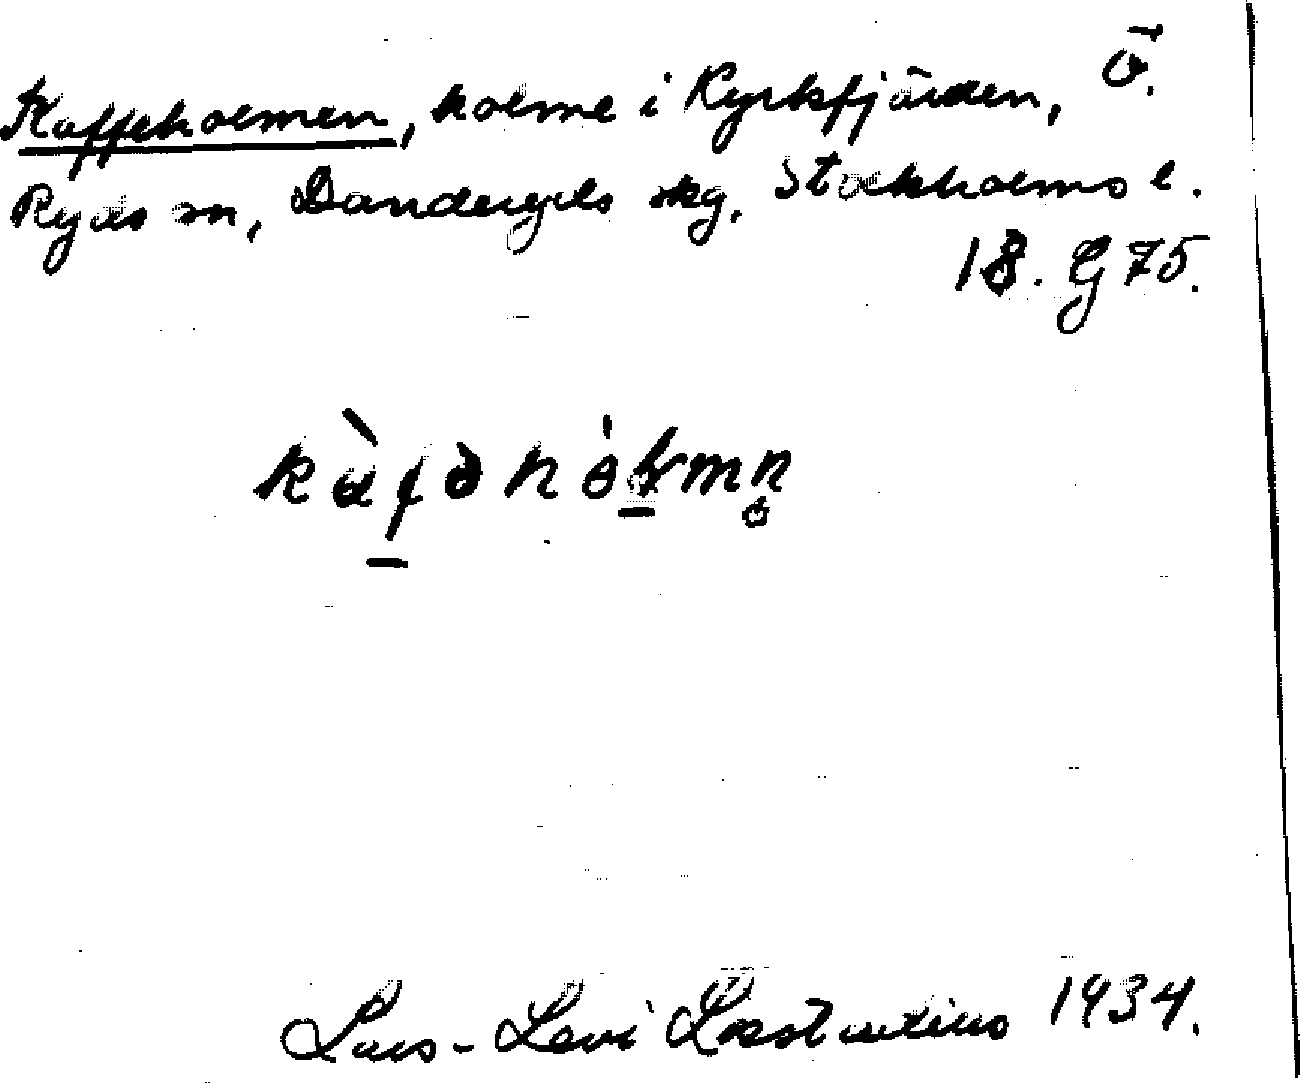 Kaffeholmen, holme i Kyrkfjärden, Ö.
Ryds sn, Danderyds skg, Stockholms l.
18. G 75.
kàfəhólmn̥
Lars-Levi Læstadius 1934.